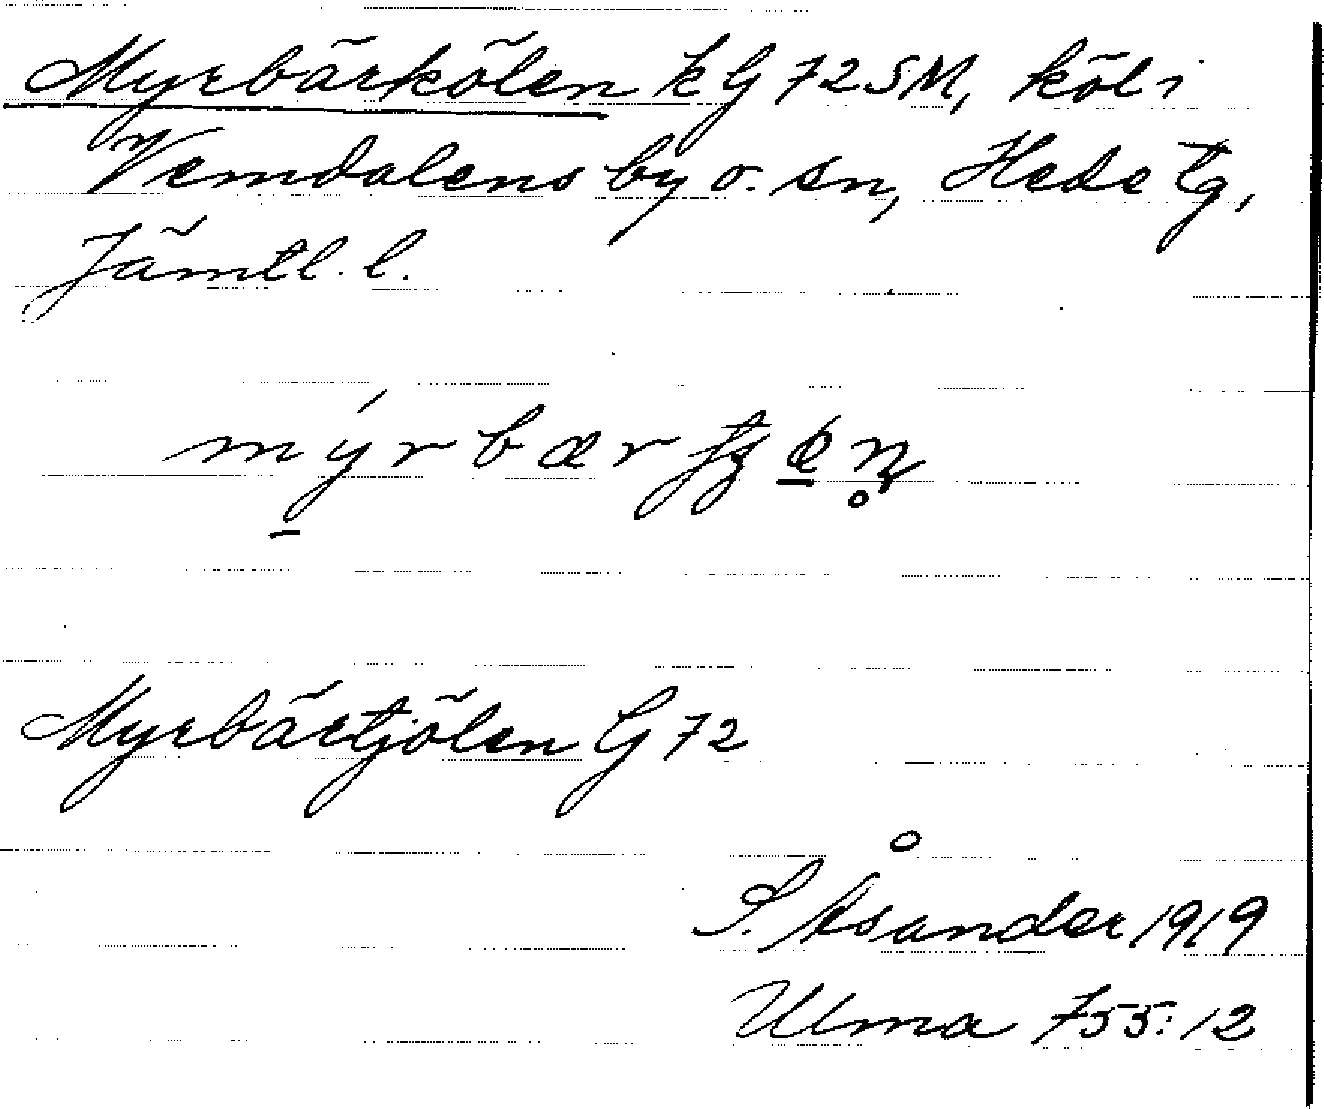 Myrbärkölen k G 72 SM, köl i
Vemdalens by o. sn, Hede tg,
Jämtl. l.
Myrbärtjölen G 72
S. Åsander 1919
Ulma 755:12